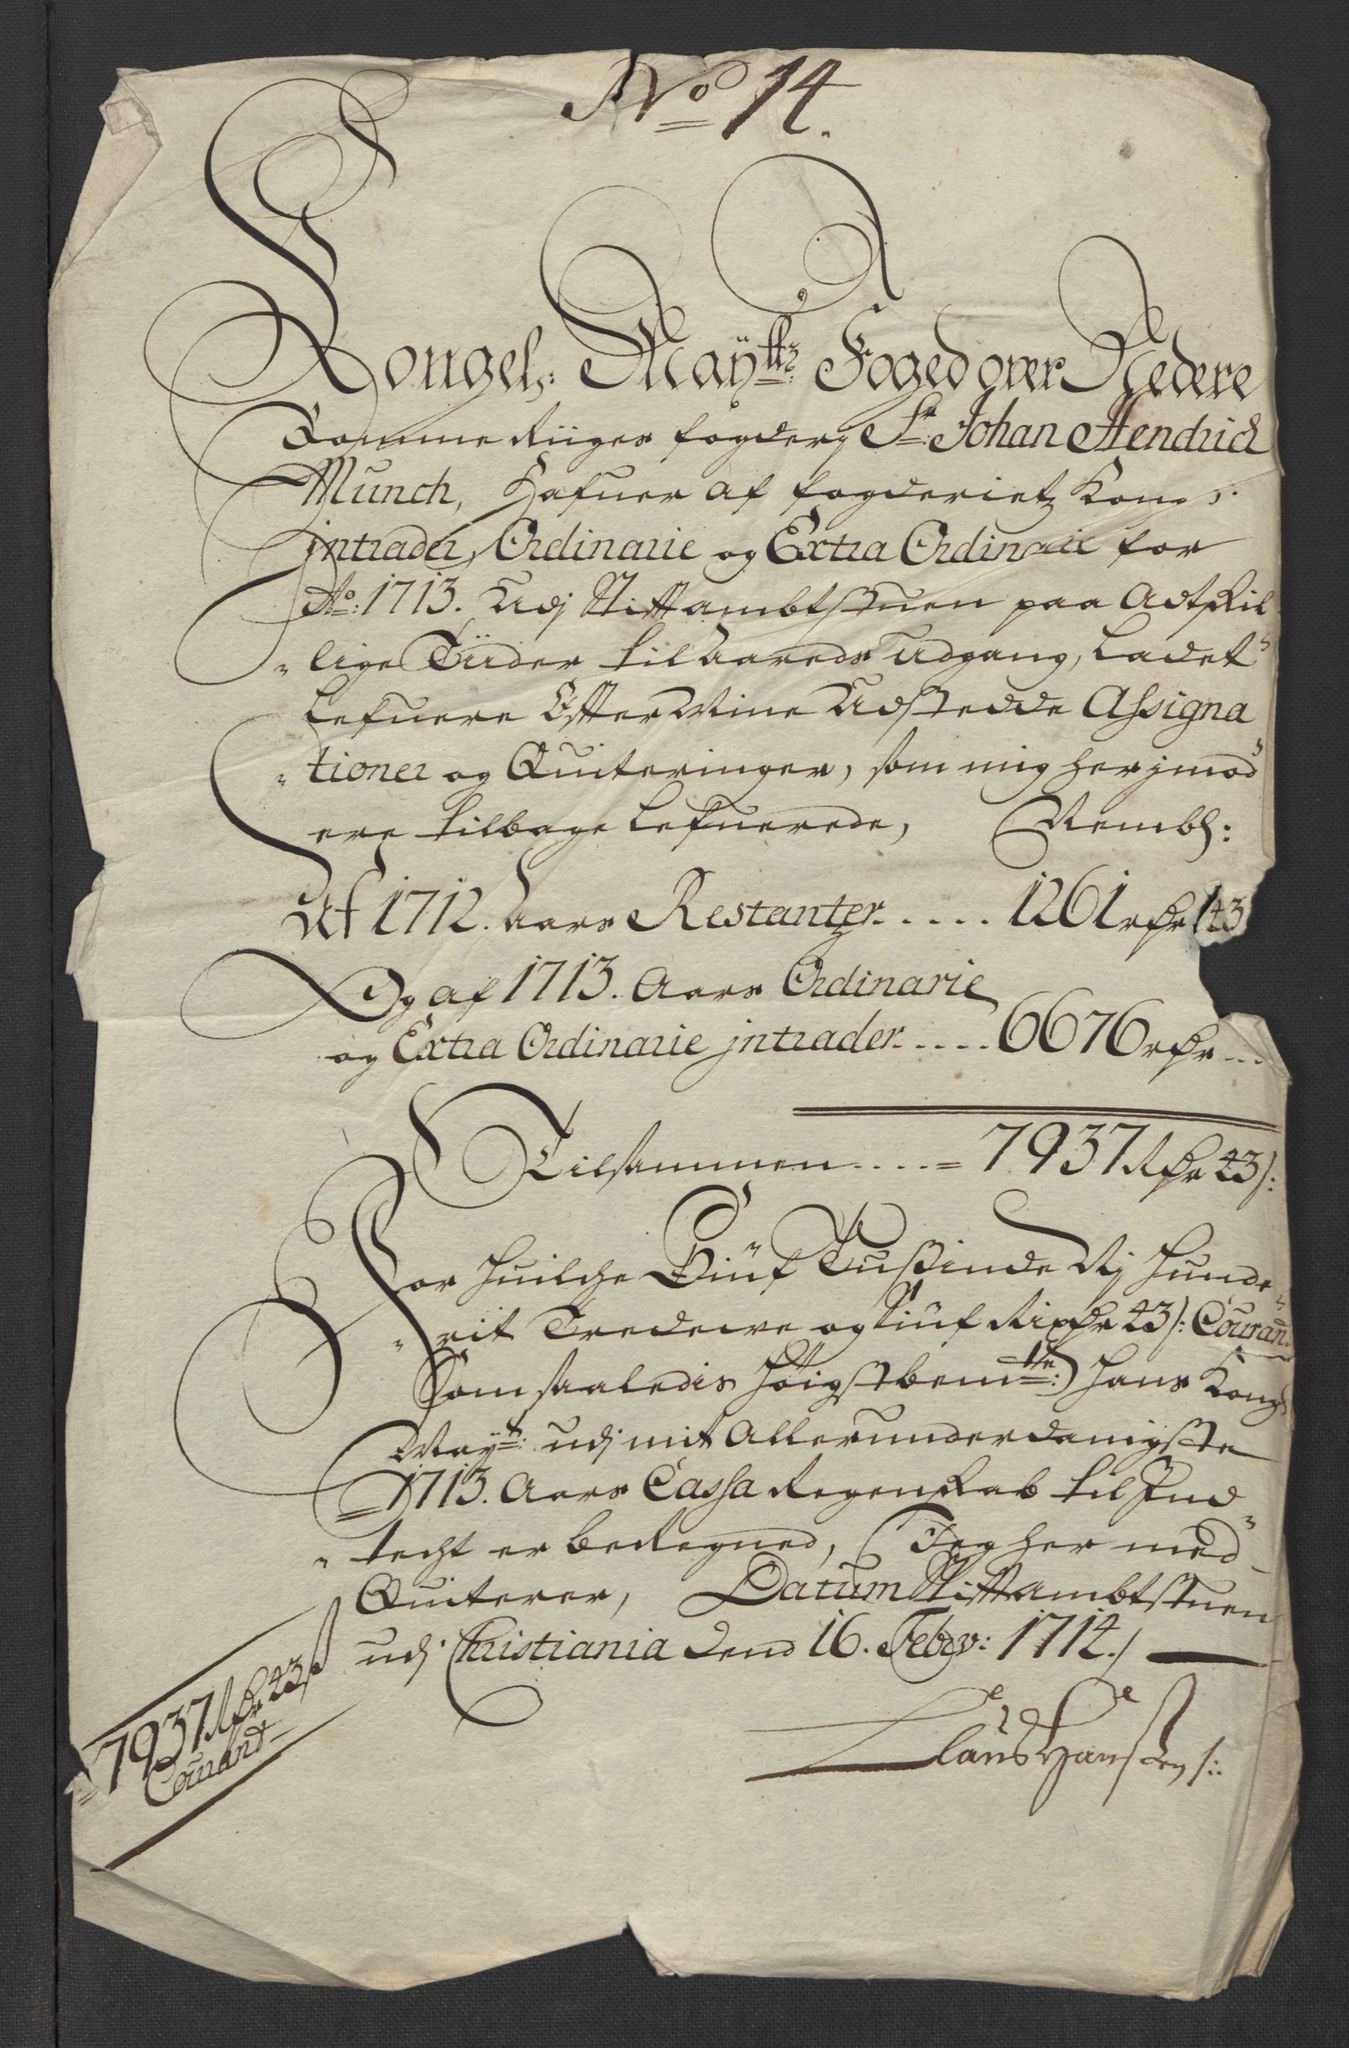 No 14.
Kongel: Maytts: Foged over Nedere
Rommeriiges fogderj Sr: Johan Hendrich
Munch, Hafuer af fogderietz Kong:
jntrader, Ordinarie og Extra Ordinarie for
Ao: 1713. Udj Stiftambtstuen paa Adtskil
lige Tiider til Aareds Udgang, Ladet
Lefuere Efter Mine Udstedde Assigna
tioner og Quiteringer, som mig herjmod
ere tilbage Lefuerede, Nembl:
Af 1712. Aars Restantzer..... 1261 rdr 43
Og af 1713. Aars Ordinarie
og Extra Ordinarie jntrader..... 6676 rdr ...
Tilsammen.... = 7937 Rdr 43 s:
For huilche Siuf Tussinde Nj Hunde
rit Tredeive og Siuf Rixdr 43 s: Couran
Som saaledis Høigstbemte: Hans Kong
Mayts: udj mit Allerunderdanigste
1713. Aars Cassa Regenskab til Ind
techt er beregned, Jeg her med
Quiterer, Datum Stiftambtstuen
udj Christiania dend 16. Febrv: 1714./
Claus Hansen s:
7937 Rdr 43 s
Courandt